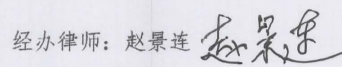 经办律师：赵景连 赵景连